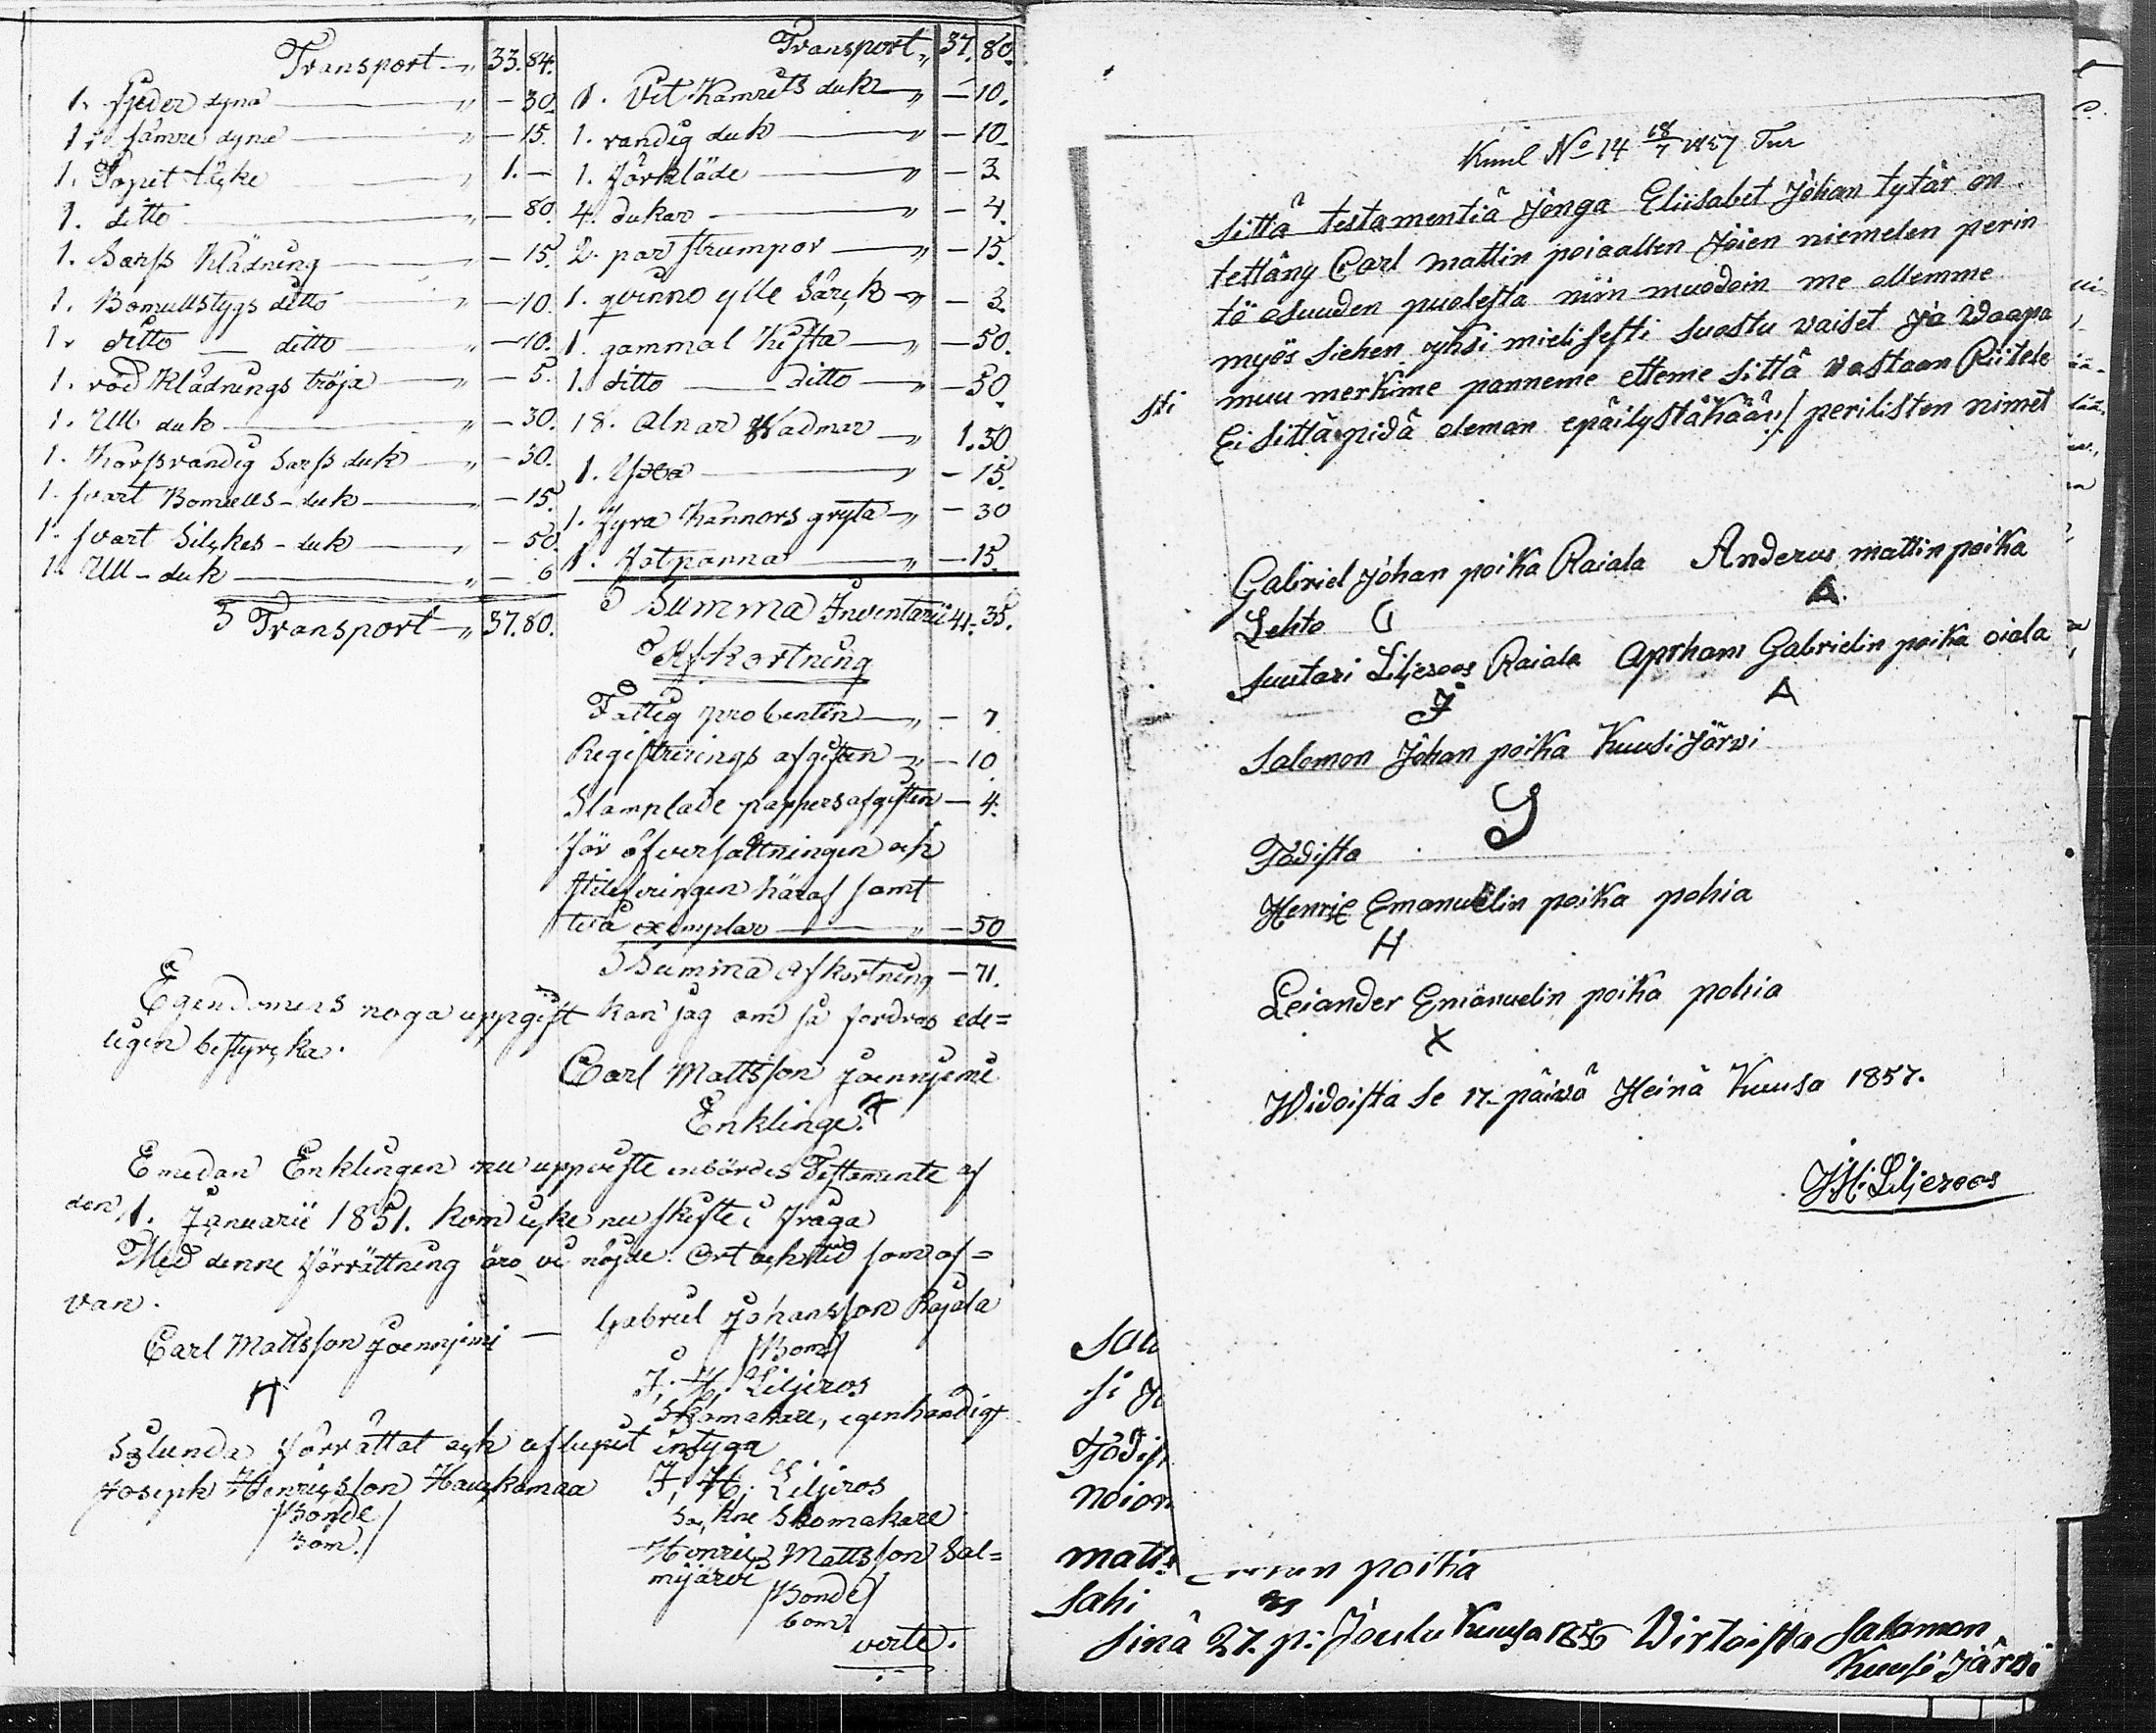 Transport — „ 33. 84.
1. fjeder dyna — „ — 30.
1. sämre dyna — „ — 15.
1. Tapet täcke — „ 1. —
1. ditto — „ — 80.
1. Sarss Klädning — „ — 15.
1. Bomullstygs ditto — „ — 10.
1. ditto — ditto — „ — 10.
1. röd Klädnings tröja — „ — 5.
1. Ull duk — „ — 30.
1. Korssrandig Sarss duk — „ — 30.
1. svart Bomulls-duk — „ — 15.
1. svart Silckes-duk — „ — 50.
1. Ull-duk — „ — 6
Transport — „ 37. 80.
Transport „ 37. 80.
1. Vit Kamrits duk — „ — 10.
1. randig duk — „ — 10
1. förkläde — „ — 3
4. dukar — „ — 4.
2. par strumpor — „ — 15.
1. qvinno ylle Särck — „ — 3.
1. gammal Kista — „ — 50.
1. ditto — ditto — „ — 50.
18. Alnar Wadmar — „ 1. 50
1. Yxa — „ — 15.
1. fyra Kannors gryta — „ — 30
1. fotpanna — „ — 15.
Summa Inventarii 41. 35.
Afkortning
Fattig procenten — „ — 7.
Registrerings afgiften — „ — 10.
Stamplade pappersafgiften — 4.
för öfversättningen och
häraf samt
två exemplar — „ — 50
Summa Afkortning — 71.
Egendomens noga uppgift kan jag om så fordras ede=
ligen bestyrcka.
Carl Mattsson Joennjemi
Enklinge.
Emedan Enklingen nu uppviste inbördes Testamente af
den 1. Januarii 1851. kom icke nu skifte i fråga
Med denne förrättning äro vi nöjde. Ort och tid som of=
van.
Carl Mattsson Joennjemi — Gabriel Johansson Rajala
H
/Bom/
J. H. Liljeros
Skomakare, egenhändigt
Sålunda förrättat och aflupit intyga
Joseph Henricsson Hauckamaa J. H. Liljeros
/Bonde Sockne Skomakare
bom./ Henric Mattsson Sal=
mijärvi
/Bonde/
bom/
verte.
Kuul No 14 18/7 1857 Tur
sittä testamentiä Jonga Eliisabet Johan tytär on
tettäny Carl mattin poiaallen Joien niemelen perin
tö osuuden puolesta niin muodoin me ollemme
myös siehen yhsi mielisesti suostu vaiset ja Waapa
sti muu merkime panneme etteme sittä vastaan Riitele
Ei sittä pidä oleman epäilystäkään / perilisten nimet
Gabriel Johan poika Raiala Anderus mattin poika
Lehto G A
suutari Liljeroos Raiala Aprham Gabrielin poika oiala
J A
Salomon Johan poika Kuusi Järvi
S
Todista
Henric Emanuelin poika pohia
H
Leiander Emanuelin poika pohia
X
Widoista se 17_päivä Heinä Kuusa 1857.
J.H. Liljeroos
Sal
si J
Todis
noion
matt poika
Sahi
sinä 27. p: Joulu Kuusa 1856 Wirtoista Salomon
Kuusi Järvi